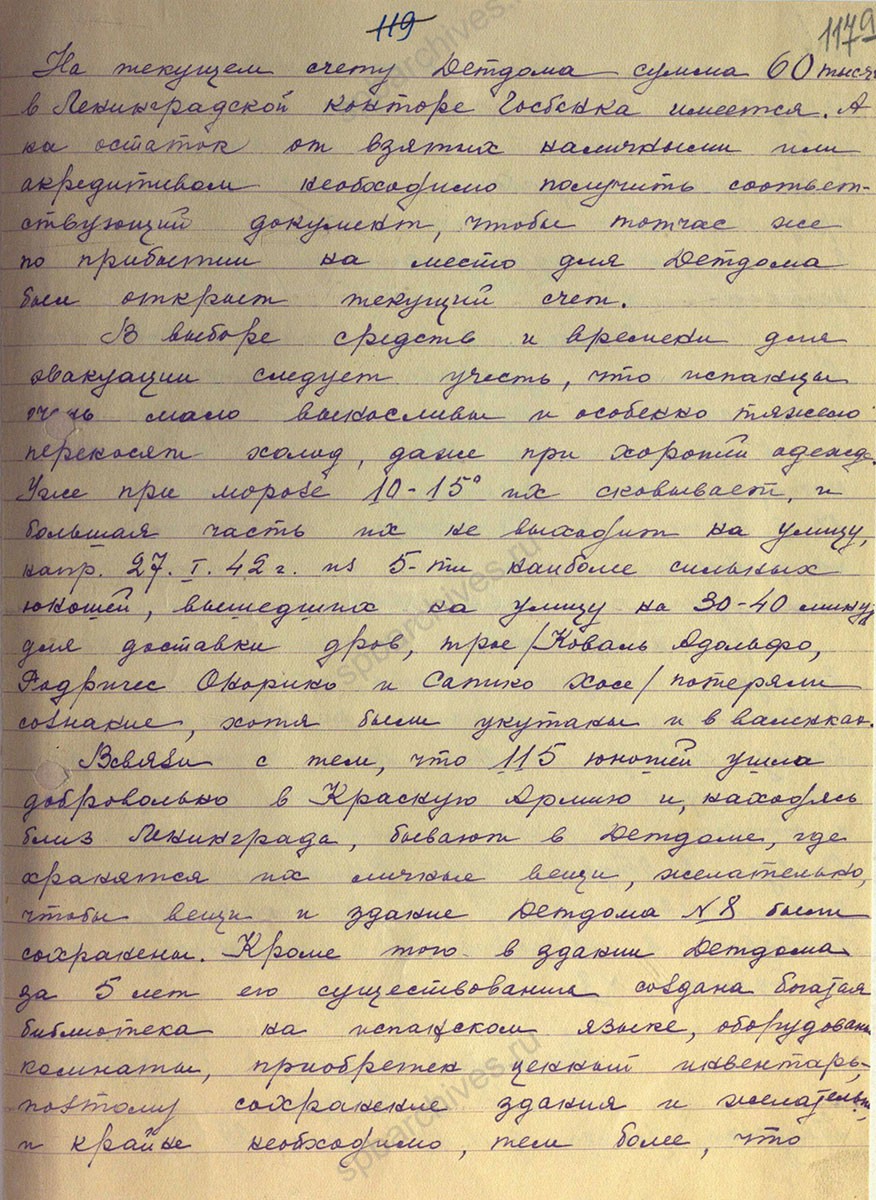 119
1179
На текущем счету Детдома сумма 60 тысяч
в Ленинградской конторе Госбанка имеется. А
на остаток от взятых наличными или
акредитивом необходимо получить соответ-
ствующий документ, чтобы тотчас же
по прибытии на место для Детдома
был открыт текущий счет.
В выборе средств и времени для
эвакуации следует учесть, что испанцы
очень мало выносливы и особенно тяжело
переносят холод, даже при хорошей одежде.
Уже при морозе 10-15° их сковывает, и
большая часть их не выходит на улицу,
напр. 27.I.42 г. из 5-ти наиболее сильных
юношей, вышедших на улицу на 30-40 минут
для доставки дров, трое /Коваль Адольфо,
Родричес Онорико и Сапико Хосе/ потеряли
сознание, хотя были укутаны и в валенках.
Всвязи с тем, что 115 юношей ушла
добровольно в Красную Армию и, находясь
близ Ленинграда, бывают в Детдоме, где
хранятся их личные вещи, желательно,
чтобы вещи и здание Детдома №8 были
сохранены. Кроме того в здании Детдома
за 5 лет его существования создана богатая
библиотека на испанском языке, оборудованы
комнаты, приобретен ценный инвентарь,
поэтому сохранение здания и желательно,
и крайне необходимо, тем более, что
spbarchives.ru
spbarchives.ru
spbarchives.ru